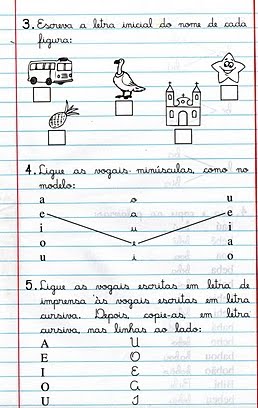 3. Escreva a letra inicial do nome de cada
figura:
4. Ligue as vogais minúsculas, como no
modelo:
a o u
e a e
i u i
o e a
u i o
5. Ligue as vogais escritas em letra de
imprensa às vogais escritas em letra
cursiva. Depois, copie-as, em letra
cursiva, nas linhas ao lado:
A U
E O
I E
O A
U I